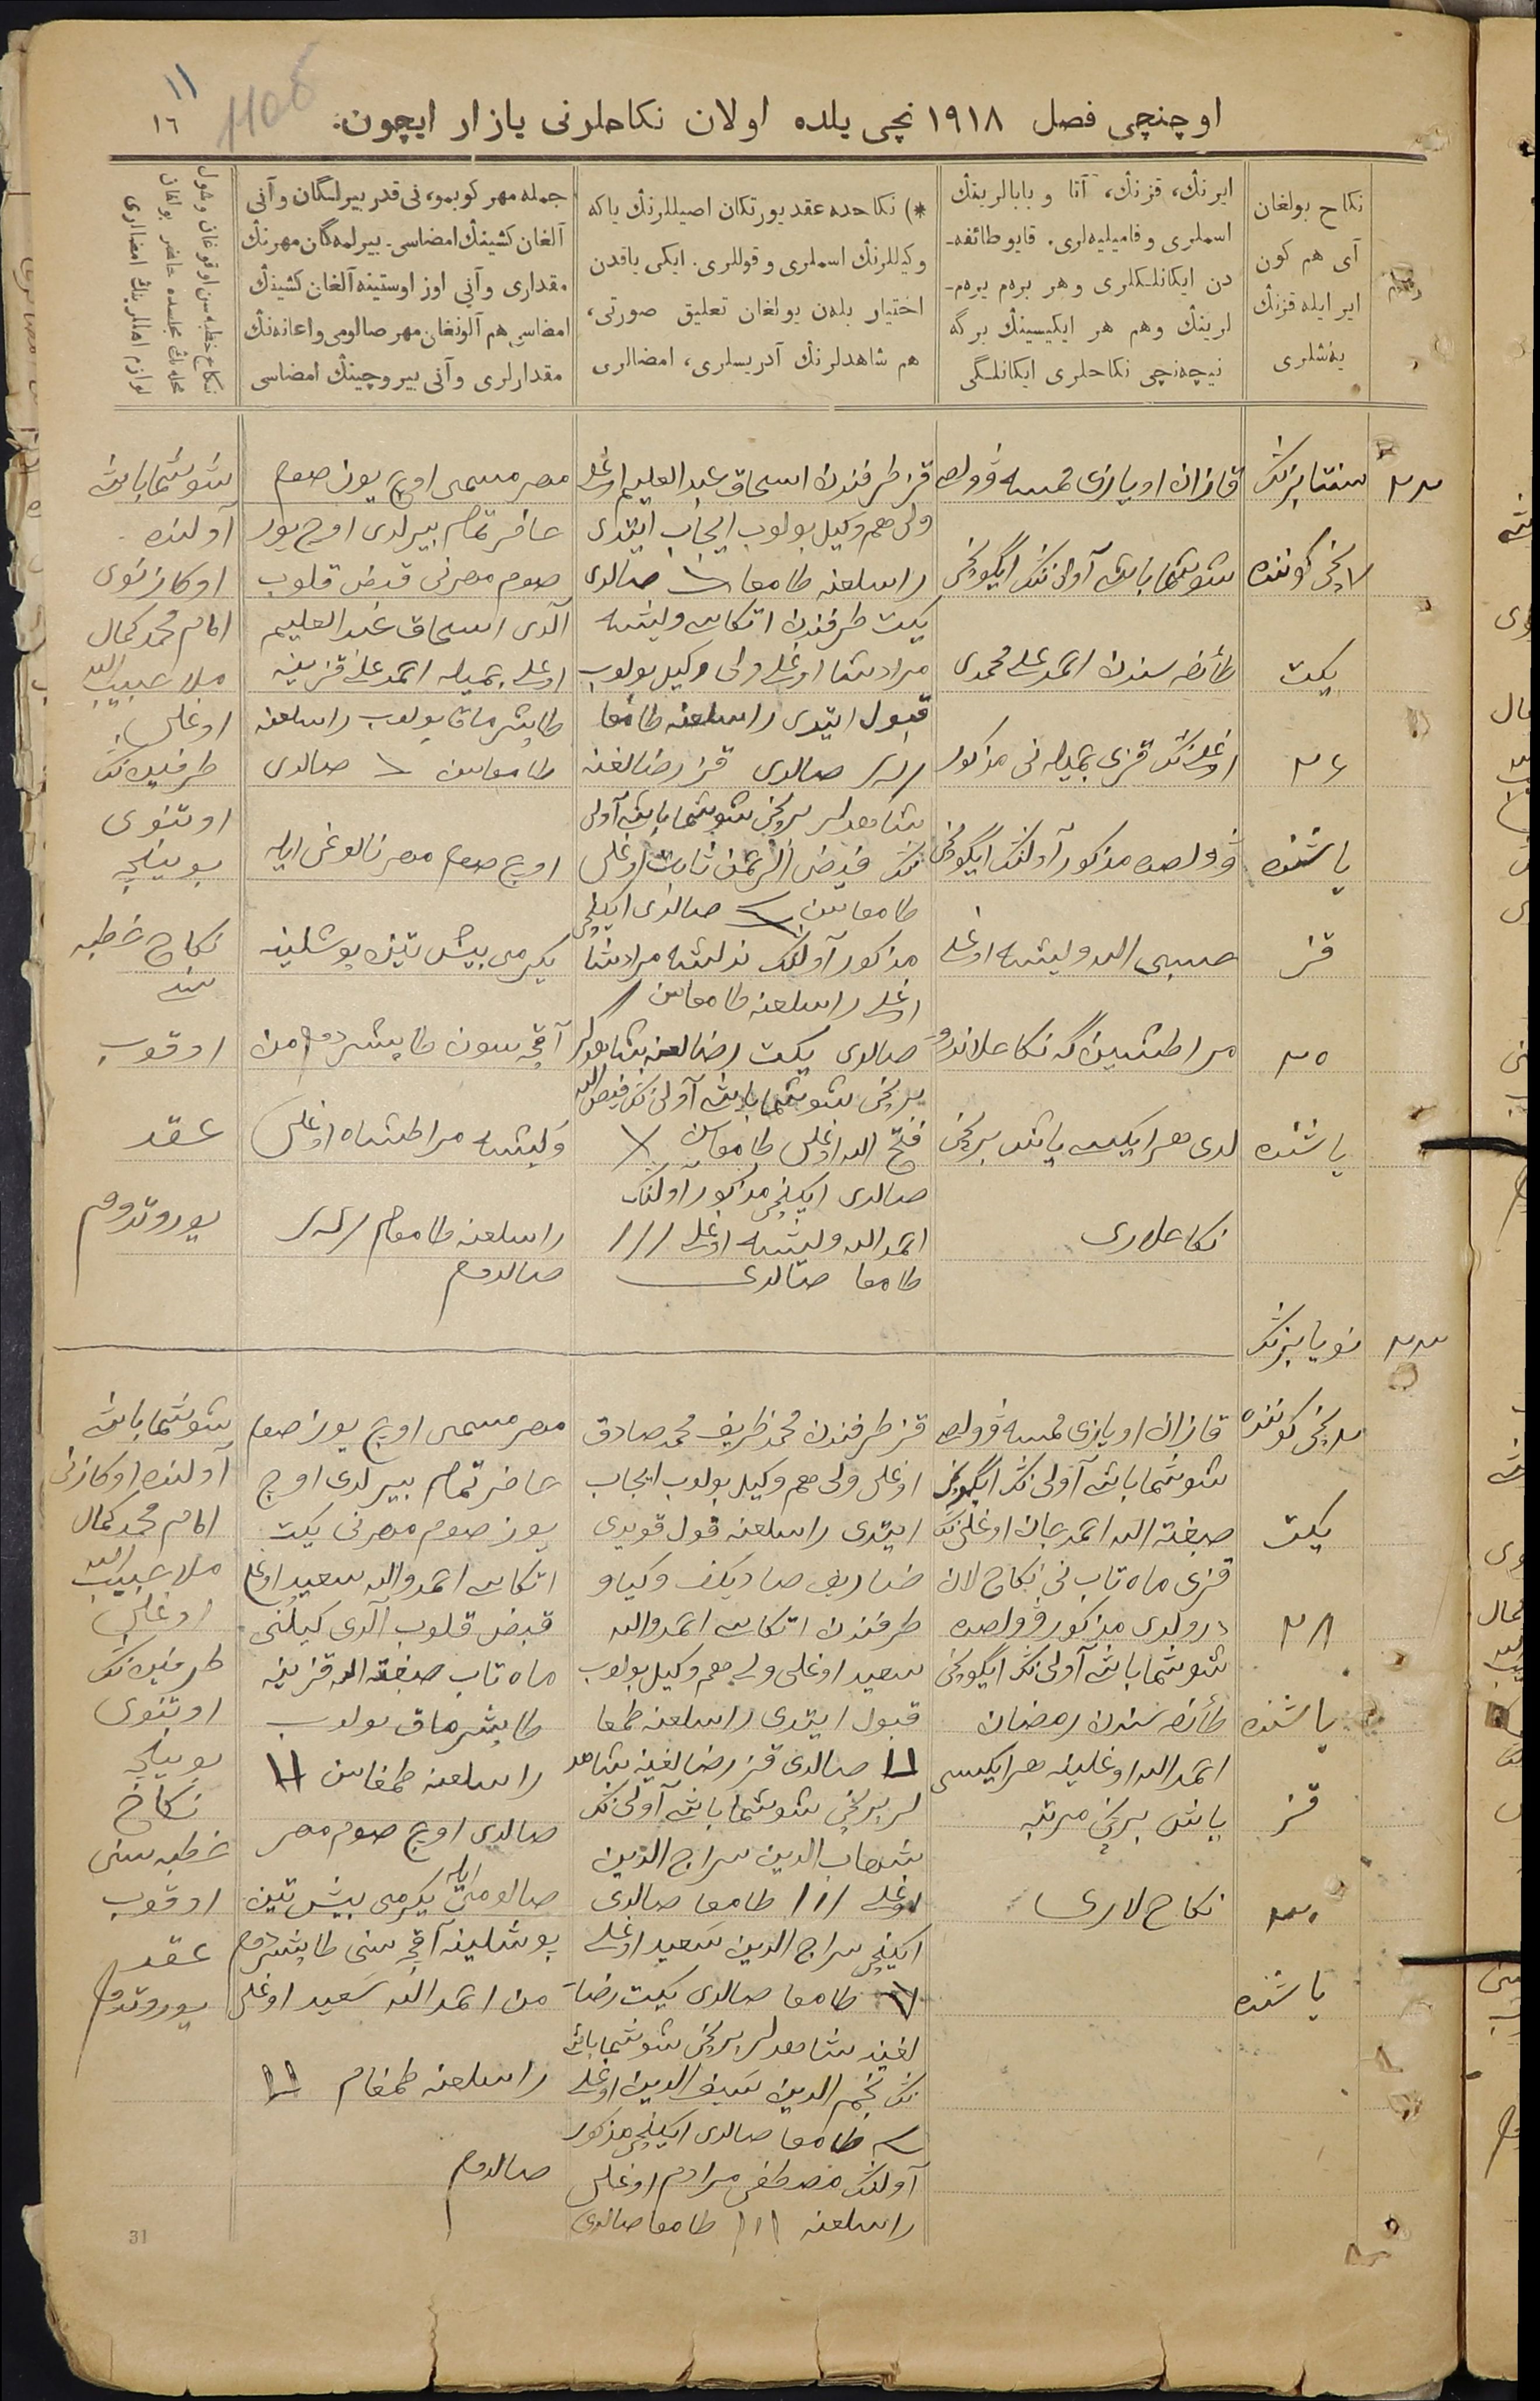 اوچنچی فصل ۱۹۱۸ نچی یلده اولان نکاحلرنی یازار ایچون.
۱۱
۱۶
رقم
نکاح بولغان
آی هم کون
ایر ایله قزنڭ
یەشلری
ایرنڭ، قزنڭ، آتا و بابالرینڭ
اسملری و فامیلیەلری. قایو طائفه-
دن ایکانلکلری وهر برەم برەم-
لرینڭ وهم هر ایکیسینڭ برگه
نیچەنچی نکاحلری ایکانلگی
*) نکاحده عقد یورتکان اصیللرنڭ یاکه
وکیللرنڭ اسملری و قوللری. ایکی یاقدن
اختیار بلەن بولغان تعلیق صورتی،
هم شاهدلرنڭ آدریسلری، امضالری
جمله مهر کوبمو، نی قدر بیرلگان وآنی
آلغان کشینڭ امضاسی. بیرلمەگان مهرنڭ
مقداری وآنی اوز اوستینه آلغان کشینڭ
امضاسی هم آلونغان مهر صالومی واعانەنڭ
مقدارلری وآنی بیروچینڭ امضاسی
نکاح خطبەسن اوقوغان وشول
محلەنڭ مجلسده حاضر بولغان
لوازم اهللرینڭ امضالری
۲۲
سنتابرنڭ
۷ نچی کوننده
یکت
۲۶
یاشنده
قز
۲۵
یاشنده
قازان اویازی ... وولصه
شوشماباش آولی ننڭ ایگونچی
طائفه سندن احمدعلی محمدی
اوغلی ننڭ قزی جمیله نی مذکور
وولصده مذکور آولننڭ ایگونچی
حبیب الله ولیشه اوغلی
مراطشینگه نکاحلاندردی
لدی هر ایکیسی یاش برنچی
نکاحلاری
قز طرفندن اسحاق عبدالعلیم اوغلی
ولی هم وکیل بولوب ایجاب ایتدی
راسلغنه طامغاسن صالدی
یکت طرفندن اتکاسی ولیشه
مرادشا اوغلی ولی وکیل بولوب
قبول ایتدی راسلغنه طامغا
صالدی قز رضالغنه
شاهدلر برنچی شوشماباش آولی
ننڭ فیض الرحمن ثابت اوغلی
طامغاسن صالدی ایکنچی
مذکور آولننڭ ... مرادشا
اوغلی راسلغنه طامغاسن
صالدی یکت رضالغنه شاهدلر
برنچی شوشماباش آولی ننڭ فیض الله
فتح الله اوغلی طامغاسن
صالدی ایکنچی مذکور آولننڭ
احمدالله ولیشه اوغلی
طامغا صالدی
مهر مسمی اوچ یوز صوم
حاضر تمام بیرلدی اوچ یوز
صوم مهرنی قبض قلوب
آلدی اسحاق عبدالعلیم
اوغلی جمیله احمدعلی قزینه
طابشرماق بولوب راسلغنه
طامغاسن صالدی
اوچ صوم مهر نالوغی ایله
یکرمی بیش تین پوشلینه
آقچه سون طابشردم من
ولیشه مراطشاه اوغلی
راسلغنه طامغام
صالدوم
شوشماباش
آولنده
اوکازنوی
امام محمد کمال
ملا حبیب الله
اوغلی
طرفین ننڭ
اوتنوی
بوینچه
نکاح خطبه
سنی
اوقوب
عقد
یوروتدوم
۲۳
نویابرنڭ
۳ نچی کوننده
یکت
۲۸
یاشنده
قز
۳۰
یاشنده
قازان اویازی ... وولصه
شوشماباش آولی ننڭ ایگونچی
صبغة الله احمدجان اوغلی ننڭ
قزی ماه تاب نی نکاح لان
درولدی مذکور وولصده
شوشماباش آولی ننڭ ایگونچی
طائفه سندن رمضان
احمدالله اوغلینه هر ایکیسی
یاش برنچی مرتبه
نکاح لاری
قز طرفندن محمد ظریف محمد صادق
اوغلی ولی هم وکیل بولوب ایجاب
ایتدی راسلغنه قول قویدی
ضاریف صادیکف وکیاو
طرفندن اتکاسی احمدوالله
سعید اوغلی ولی هم وکیل بولوب
قبول ایتدی راسلغنه طمغا
صالدی قز رضالغینه شاهد
لر برنچی شوشماباش آولی ننڭ
شهاب الدین سراج الدین
اوغلی طامغا صالدی
ایکنچی سراج الدین سعید اوغلی
طامغا صالدی یکت رضا
لغینه شاهدلر برنچی شوشماباش
ننڭ نجم الدین سیف الدین اوغلی
طامغا صالدی ایکنچی مذکور
آولننڭ مصطفی مرادم اوغلی
راسلغنه طامغا صالدی
مهر مسمی اوچ یوز صوم
حاضر تمام بیرلدی اوچ
یوز صوم مهرنی یکت
اتکاسی احمدوالله سعید اوغلی
قبض قلوب آلدی کیلنی
ماه تاب صبغة الله قزینه
طابشرماق بولوب
راسلغنه طمغاسن
صالدی اوچ صوم مهر
صالومی ایله یکرمی بیش تین
پوشلینه آقچه سنی طابشردم
من احمدالله سعید اوغلی
راسلغنه طمغام
صالدوم
شوشماباش
آولنده اوکازنی
امام محمد کمال
ملا حبیب الله
اوغلی
طرفین ننڭ
اوتنوی
بوینچه
نکاح
خطبه سنی
اوقوب
عقد
یوروتدوم
31